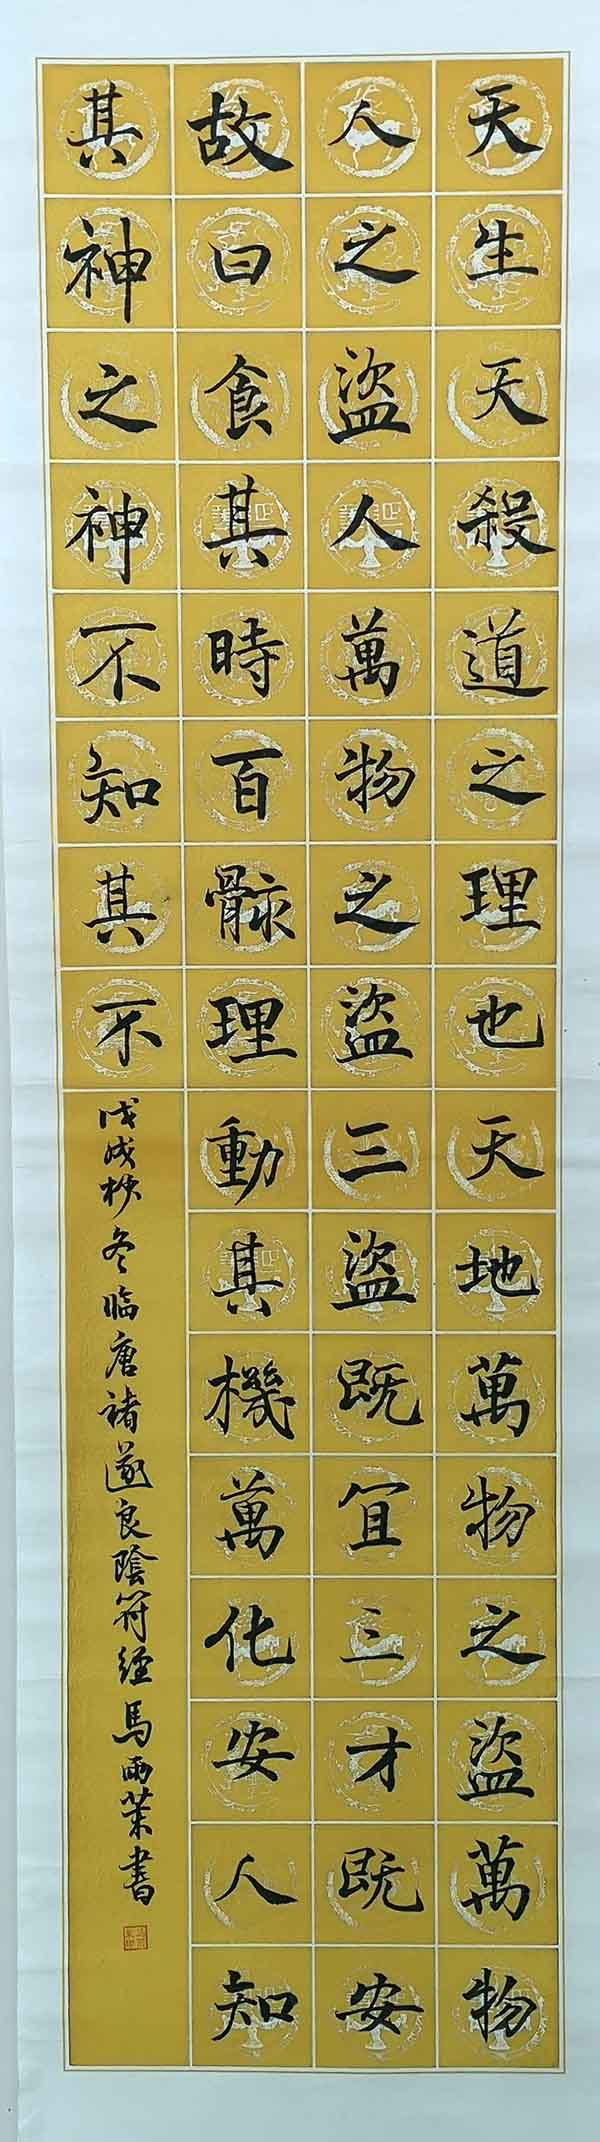 天生天殺道之理也天地萬物之盜萬物
人之盜人萬物之盜三盜既宜三才既安
故曰食其時百骸理動其機萬化安人知
其神之神不知其不
戊戌秋冬临唐褚遂良陰符經馬雨茉書